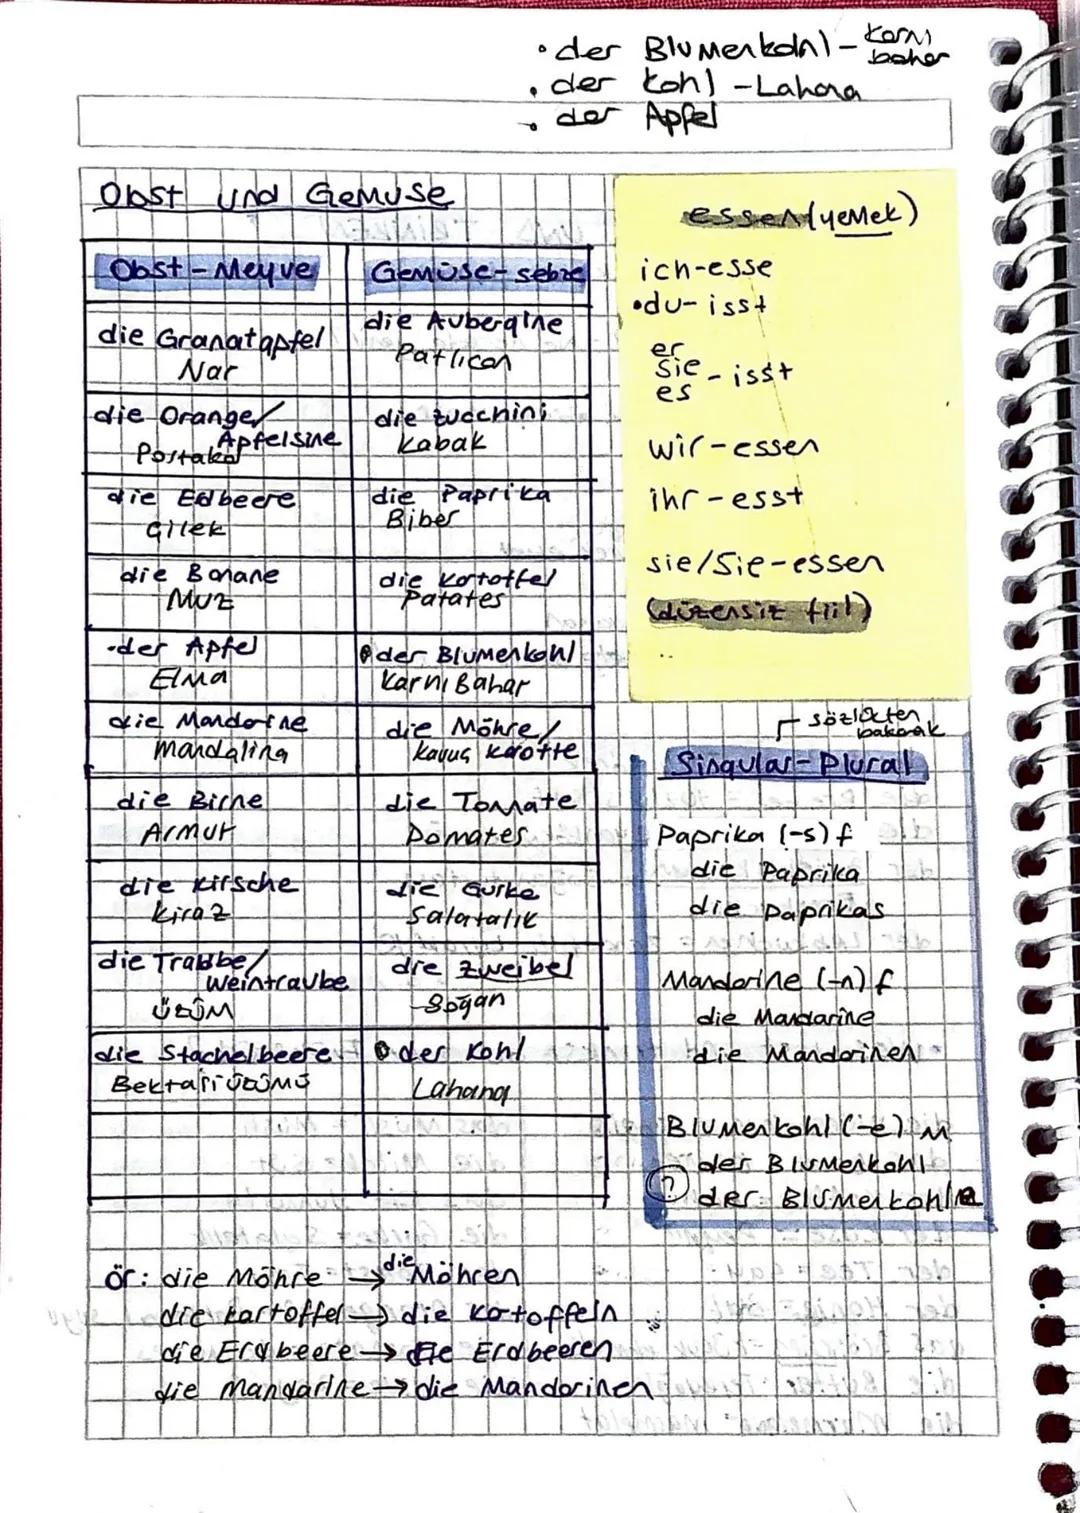 • der Blumenkohl - Karnı
bahar
• der Kohl - Lahana
• der Apfel
Obst und Gemuse
Obst - Meyve
Gemüse - sebze
die Granatapfel
Nar
die Aubergine
Patlıcan
die Orange/
Apfelsine
Portakal
die zucchini
Kabak
die Erdbeere
Çilek
die Paprika
Biber
die Banane
Muz
die Kartoffel
Patates
•der Apfel
Elma
• der Blumenkohl
Karnı Bahar
die Mandarine
Mandalina
die Möhre/
Havuç Karotte
die Birne
Armut
die Tomate
Domates
die Kirsche
Kiraz
die Gurke
Salatalık
die Traube/
weintraube
üzüm
die zweibel
Soğan
die Stachelbeere
Bektaşi üzümü
• der Kohl
Lahana
essen (yemek)
ich-esse
•du- isst
er
sie - isst
es
wir-essen
ihr-esst
sie/Sie-essen
(düzensiz fiil)
sözlükten
bakarak
Singular-Plural
Paprika (-s) f
die Paprika
die Paprikas
Mandarine (-n) f
die Mandarine
die Mandarinen
Blumenkohl (-e) m
der Blumenkohl
? der Blumenkohle
ör: die Möhre → die Möhren
die Kartoffel → die Kartoffeln
die Erdbeere → die Erdbeeren
die Mandarine → die Mandarinen